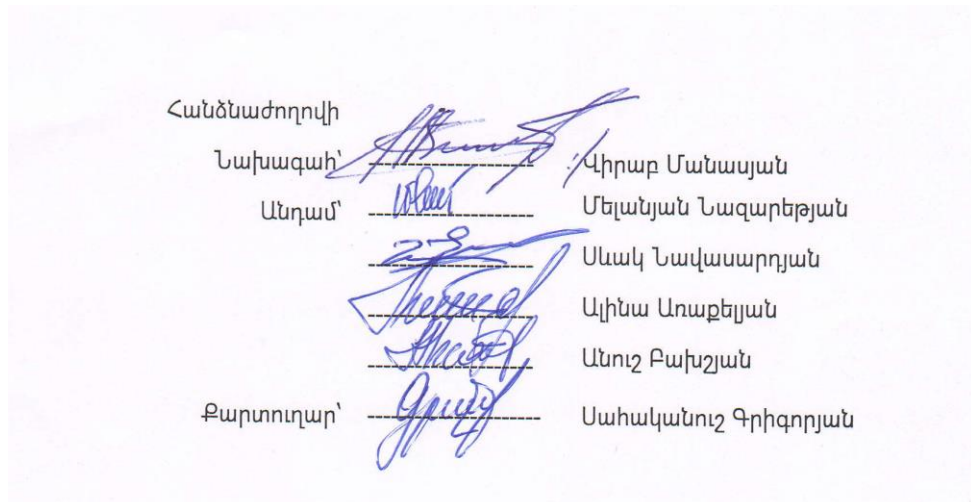 Հանձնաժողովի
Նախագահ՝ ---------------------- Վիրաբ Մանասյան
Անդամ՝ ---------------------- Մելանյան Նազարեթյան
---------------------- Սևակ Նավասարդյան
---------------------- Ալինա Առաքելյան
---------------------- Անուշ Բախշյան
Քարտուղար՝ ---------------------- Սահականուշ Գրիգորյան